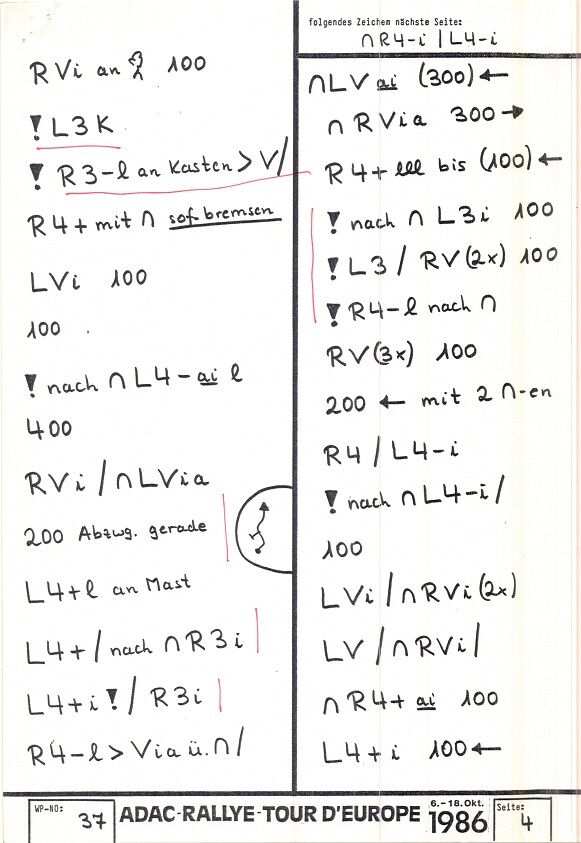 RVi an 100
! L3K
! R3-l an Kasten > V/
R4+ mit ∩ sof. bremsen
LVi 100
100 .
! nach ∩ L4-ai l
400
RVi / ∩LVia
200 Abzwg. gerade
L4+l an Mast
L4+ / nach ∩ R3i
L4+i ! / R3i
R4-l > Via ü. ∩/
folgendes Zeichen nächste Seite:
∩R4-i / L4-i
∩LV ai (300) ←
∩ RVia 300 →
R4+ lll bis (100) ←
! nach ∩ L3i 100
! L3 / RV(2x) 100
! R4-l nach ∩
RV(3x) 100
200 ← mit 2 ∩-en
R4 / L4-i
! nach ∩L4-i /
100
LVi / ∩RVi(2x)
LV / ∩RVi /
∩R4+ ai 100
L4+i 100 ←
WP-NO: 37
ADAC-RALLYE-TOUR D'EUROPE 6.-18.Okt. 1986
Seite: 4